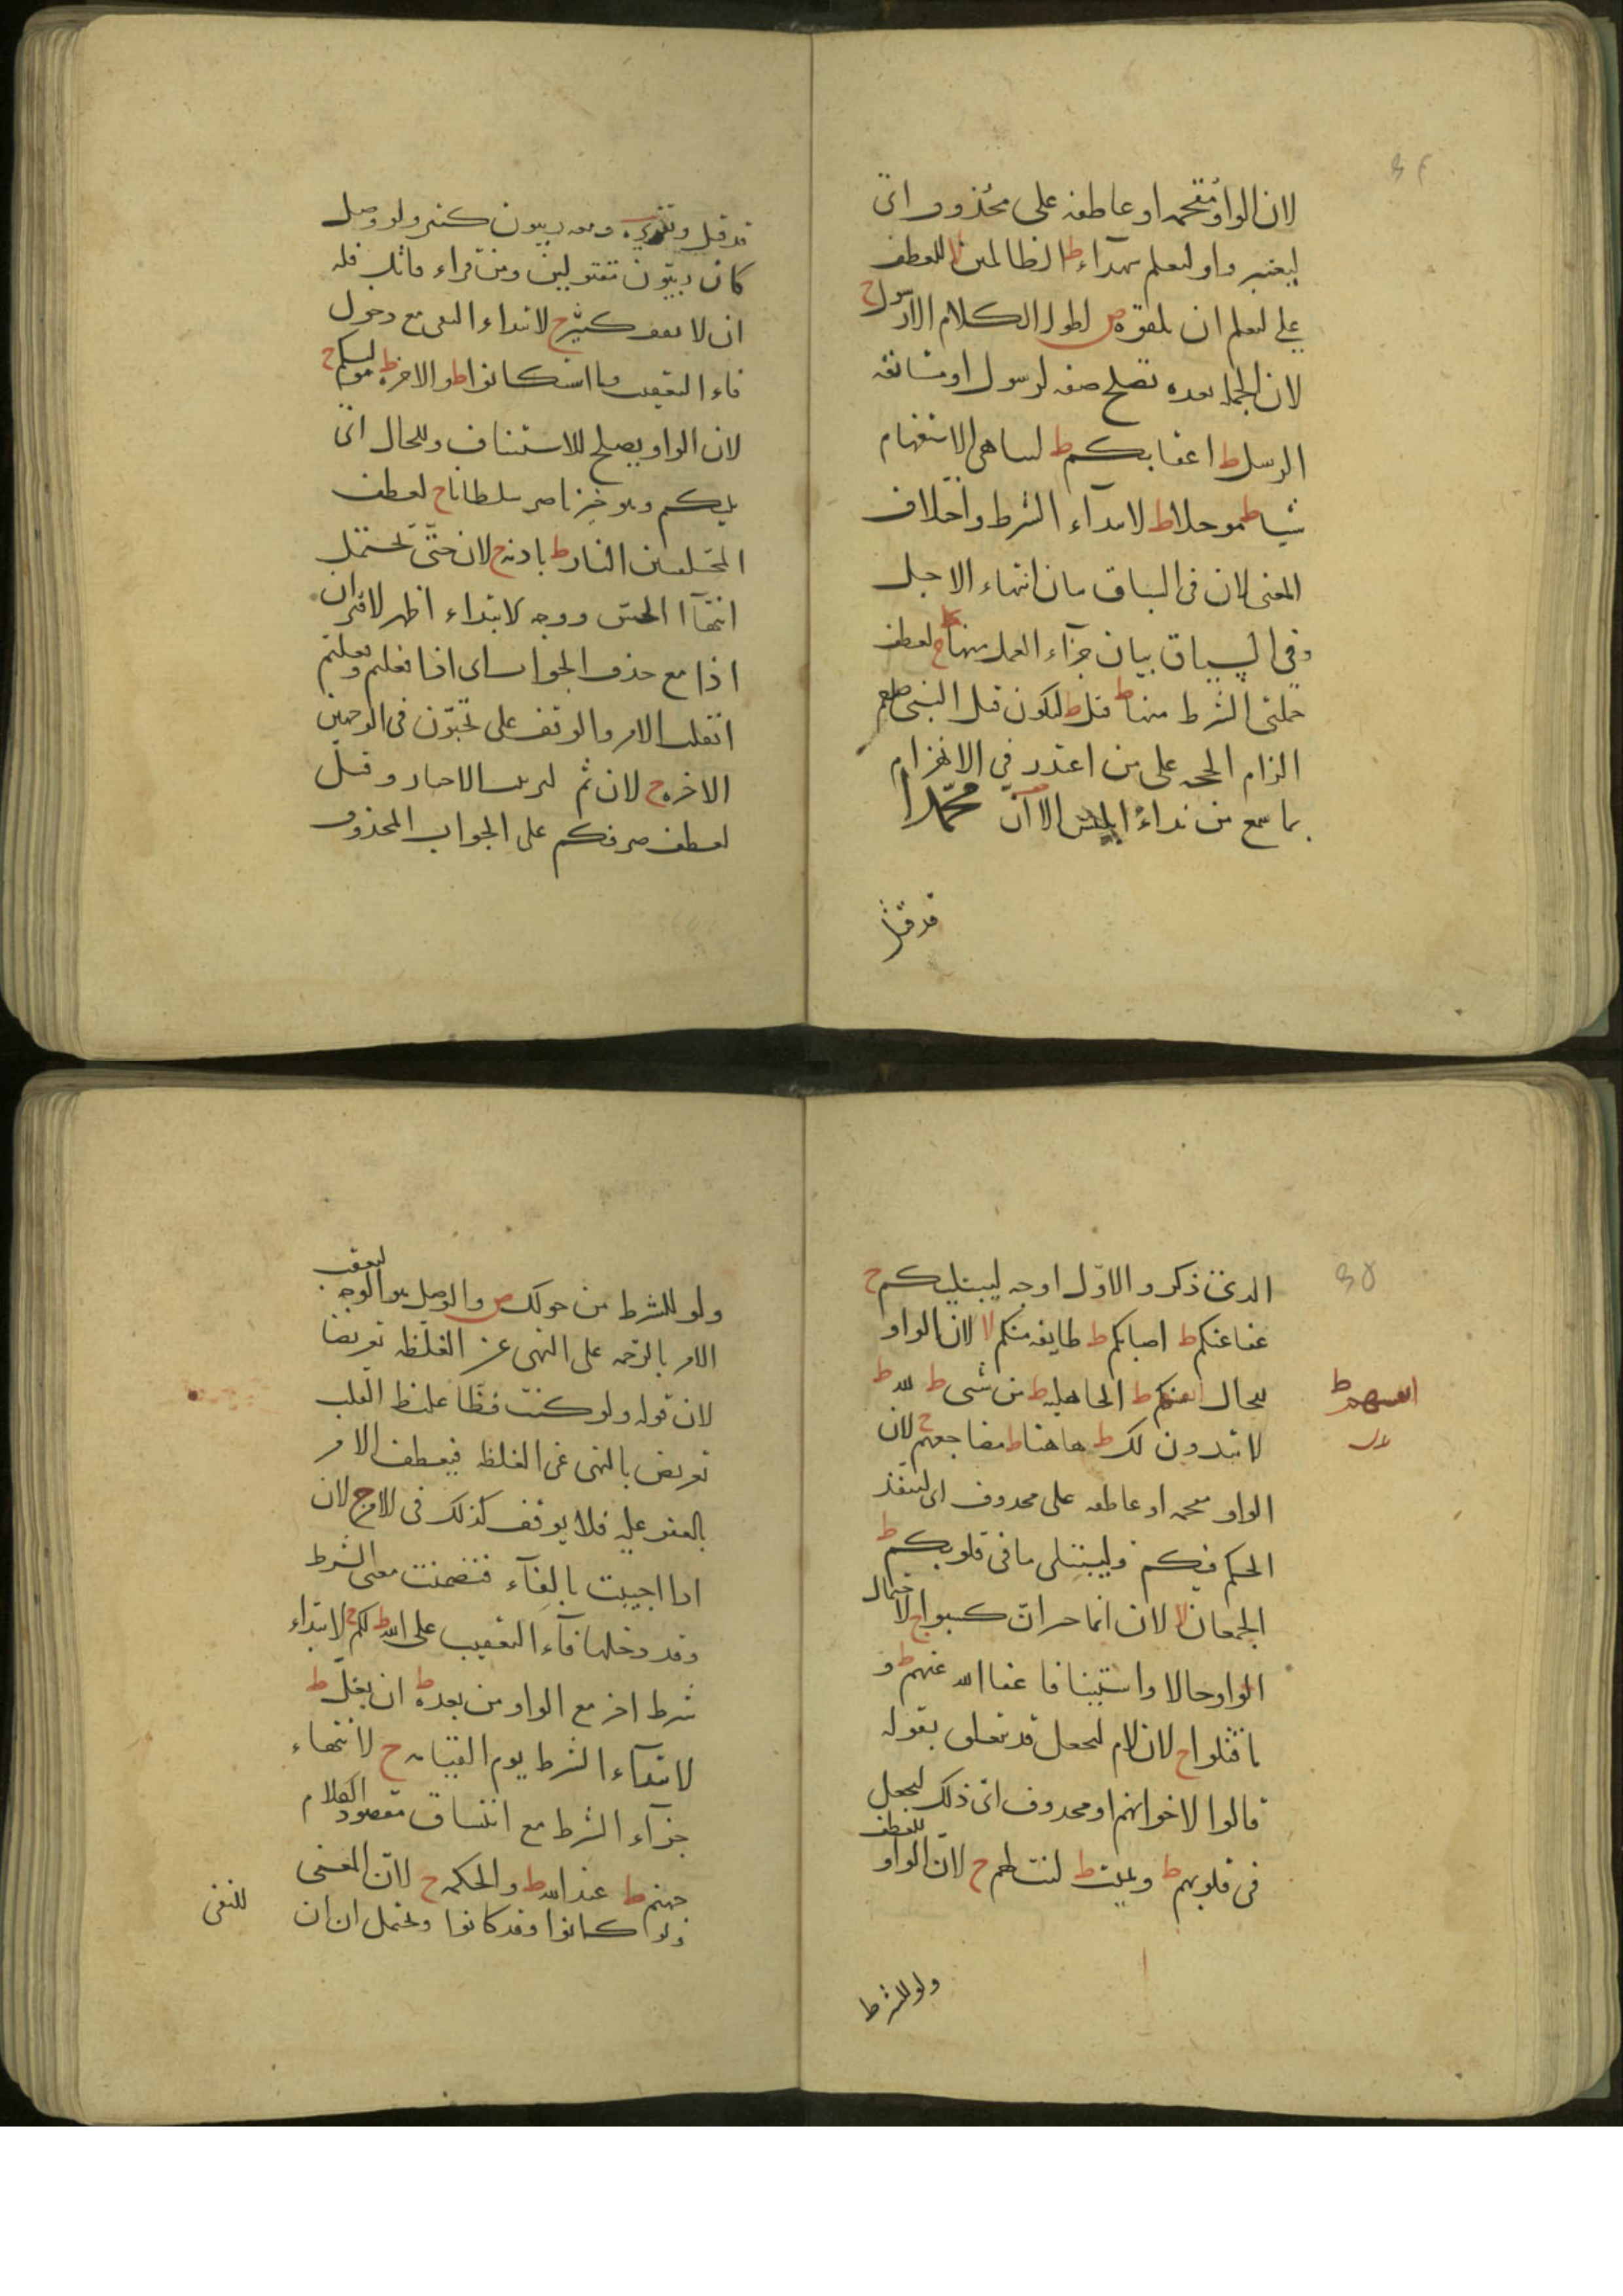 لان الواو مقحمة او عاطفة على محذوف اى
ليعتبروا وليعلم شهداء ط الظالمين لا للعطف
على ليعلم ان تلقوه ص لطول الكلام الا رسول ج
لان الجملة بعده تصلح صفة لرسول او مستانفة
الرسل ط اعقابكم ط لتناهى الاستفهام
شيا ط موجلا ط لابتداء الشرط واختلاف
المعنى لان فى السباق بيان انتهاء الاجل
وفى السياق بيان جزاء العمل منها ج لعطف
جملتى الشرط منها ط قتل ط ليكون قتل النبى صلعم
الزام الحجة على من اعتذر فى الانهزام
بما سمع من نداء ابليس الا ان محمدا
قد قتل
قد قتل وتقديره ومعه ربيون كثير ولو وصل
كان ربيون مقتولين ومن قراء قاتل فله
ان لا يقف كثير ج لابتداء النفى مع دخول
فاء التعقيب وما استكانوا ط والاخرة ط ليبتليكم ج
لان الواو يصلح للاستيناف وللحال اى
يليكم وهو خير ناصر سلطانا ج لعطف
المختلفين النار ط باذنه ج لان حتى تحتمل
انتهاء الحس ووجه الابتداء اظهر لاقتران
اذا مع حذف الجواب اى اذا فعلتم وفعلتم
انقلب الامر والوقف على تحبون فى الوجهين
الاخرة ج لان ثم لترتيب الاخبار وقيل
لعطف صرفكم على الجواب المحذوف
الذى ذكر والاول اوجه ليبتليكم ج
عفا عنكم ط اصابكم ط طايفة منكم لا لان الواو
للحال الجاهلية ط من شى ط لله ط
لا يبدون لك ط هاهنا ط مضاجعهم ج لان
الواو مقحمة او عاطفة على محذوف اى لينفذ
الحكم فيكم وليبتلى ما فى قلوبكم ط
الجمعان لا لان انما خبر ان كسبوا ج لاحتمال
الواو حالا واستينافا عفا الله عنهم ط و
ما قتلوا ج لان لام ليجعل قد تعلق بقوله
قالوا لاخوانهم او محذوف اى ذلك ليجعل
فى قلوبهم ط ويميت ط لنت لهم ج لان الواو للعطف
ولو للشرط
ولو للشرط من حولك ص والوصل هو الوجه لتعقب
الامر بالرحمة على النهى عن الغلظة تعريضا
لان قوله ولو كنت فظا غليظ القلب
تعريض بالنهى عن الغلظة فيعطف الامر
بالعفو عليه فلا يوقف كذلك فى الامر ج لان
اذا اجيبت بالفاء فتضمنت معنى الشرط
وقد دخلها فاء التعقيب على الله ط لكم ج لابتداء
شرط اخر مع الواو من بعده ط ان يغل ط
لابتداء الشرط يوم القيامة ج لانتهاء
جزاء الشرط مع اتساق مقصود الكلام
جهنم ط عند الله ط والحكمة ج لان المعنى
ولو كانوا وقد كانوا ويحتمل ان ان
للنفى